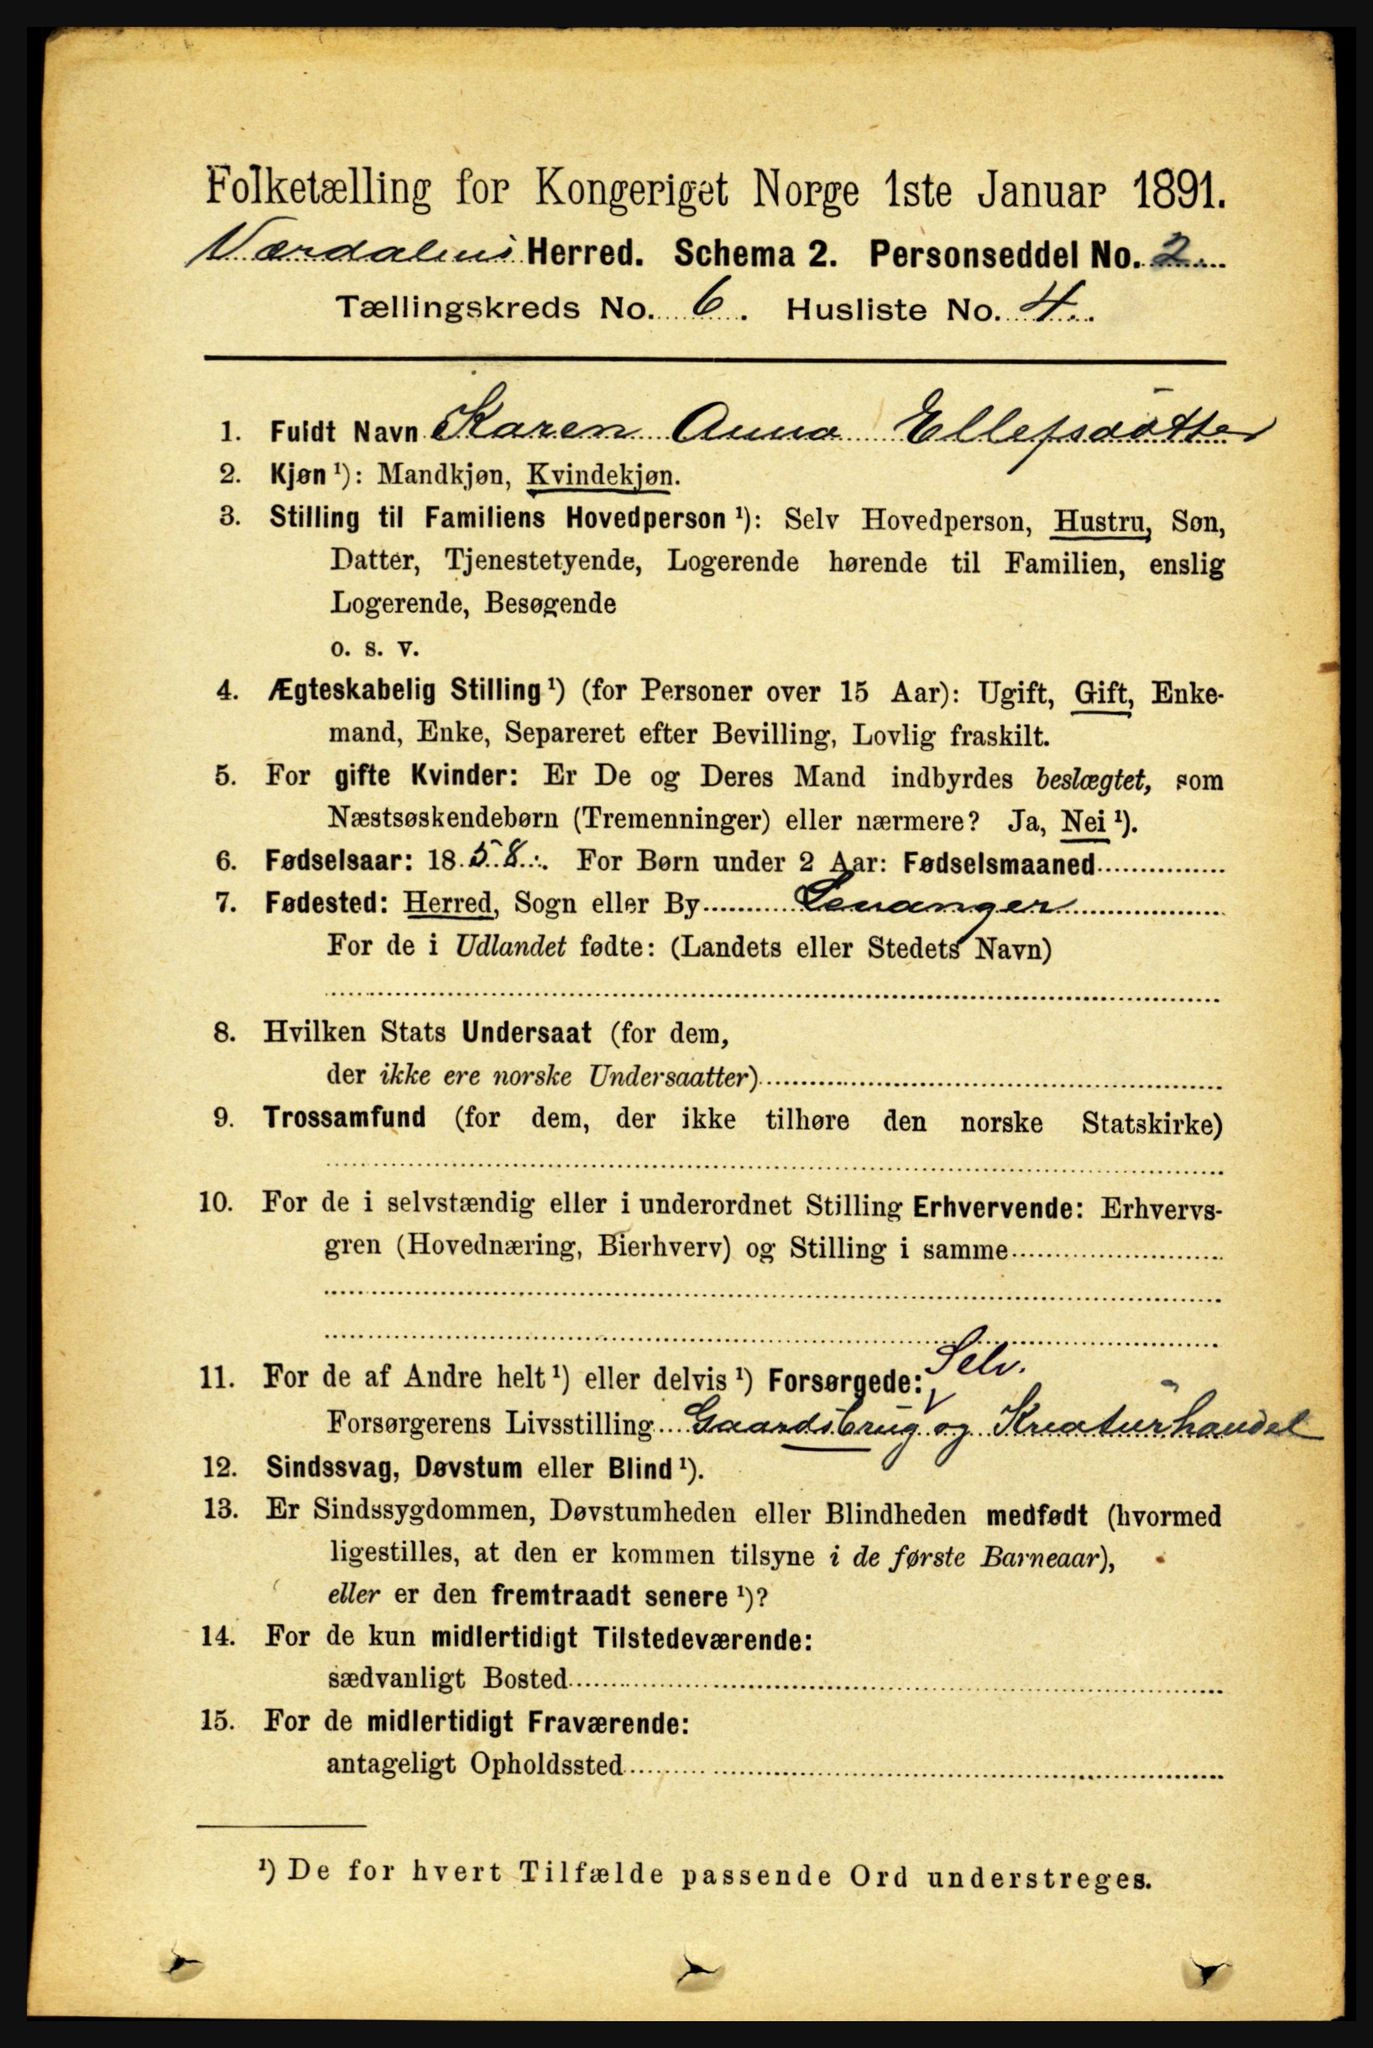 Folketælling for Kongeriget Norge 1ste Januar 1891.
Værdalens Herred. Schema 2. Personseddel No. 2
Tællingskreds No. 6. Husliste No. 4
1. Fuldt Navn Karen Anna Ellefsdatter
2. Kjøn ¹): Mandkjøn, Kvindekjøn.
3. Stilling til Familiens Hovedperson ¹): Selv Hovedperson, Hustru, Søn,
Datter, Tjenestetyende, Logerende hørende til Familien, enslig
Logerende, Besøgende
o. s. v.
4. Ægteskabelig Stilling ¹) (for Personer over 15 Aar): Ugift, Gift, Enke-
mand, Enke, Separeret efter Bevilling, Lovlig fraskilt.
5. For gifte Kvinder: Er De og Deres Mand indbyrdes beslægtet, som
Næstsøskendebørn (Tremenninger) eller nærmere? Ja, Nei ¹).
6. Fødselsaar: 1858. For Børn under 2 Aar: Fødselsmaaned
7. Fødested: Herred, Sogn eller By Levanger
For de i Udlandet fødte: (Landets eller Stedets Navn)
8. Hvilken Stats Undersaat (for dem,
der ikke ere norske Undersaatter)
9. Trossamfund (for dem, der ikke tilhøre den norske Statskirke)
10. For de i selvstændig eller i underordnet Stilling Erhvervende: Erhvervs-
gren (Hovednæring, Bierhverv) og Stilling i samme
11. For de af Andre helt ¹) eller delvis ¹) Forsørgede: Selv.
Forsørgerens Livsstilling Gaardsbrug og Kreaturhandel
12. Sindssvag, Døvstum eller Blind ¹).
13. Er Sindssygdommen, Døvstumheden eller Blindheden medfødt (hvormed
ligestilles, at den er kommen tilsyne i de første Barneaar),
eller er den fremtraadt senere ¹)?
14. For de kun midlertidigt Tilstedeværende:
sædvanligt Bosted
15. For de midlertidigt Fraværende:
antageligt Opholdssted
¹) De for hvert Tilfælde passende Ord understreges.